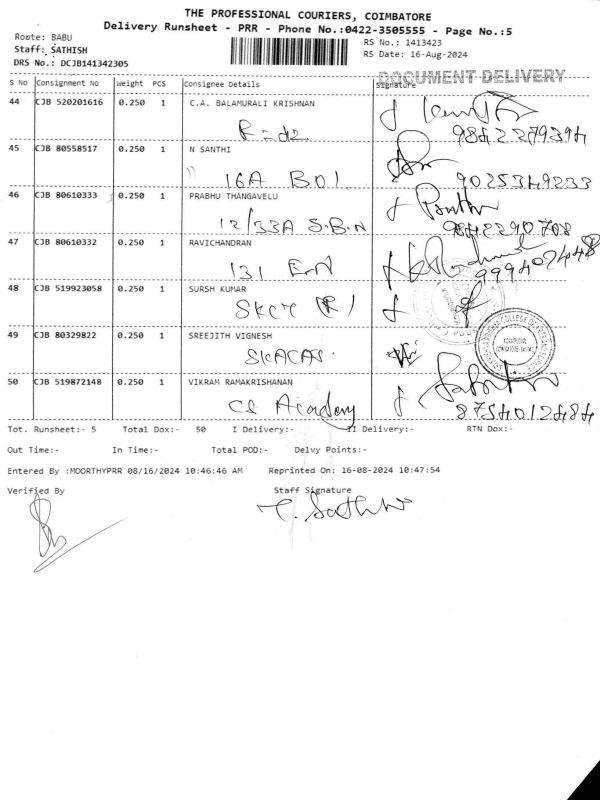 THE PROFESSIONAL COURIERS, COIMBATORE
Delivery Runsheet - PRR - Phone No.:0422-3505555 - Page No.:5
Route: BABU
Staff: SATHISH
DRS No.: DCJB141342305
RS No.: 1413423
RS Date: 16-Aug-2024
DOCUMENT DELIVERY
S No Consignment No Weight PCS Consignee Details Signature
44 CJB 520201616 0.250 1 C.A. BALAMURALI KRISHNAN
9842279394
45 CJB 80558517 0.250 1 N SANTHI
16A B01
9025349233
46 CJB 80610333 0.250 1 PRABHU THANGAVELU
12/33A S.B.N
9842290708
47 CJB 80610332 0.250 1 RAVICHANDRAN
131
9994072448
48 CJB 519923058 0.250 1 SURSH KUMAR
SKCT (R)
49 CJB 80329822 0.250 1 SREEJITH VIGNESH
SKACAS
50 CJB 519872148 0.250 1 VIKRAM RAMAKRISHANAN
CL Academy
8754012484
Tot. Runsheet:- 5 Total Dox:- 50 I Delivery:- II Delivery:- RTN Dox:-
Out Time:- In Time:- Total POD:- Delvy Points:-
Entered By :MOORTHYPRR 08/16/2024 10:46:46 AM Reprinted On: 16-08-2024 10:47:54
Verified By Staff Signature